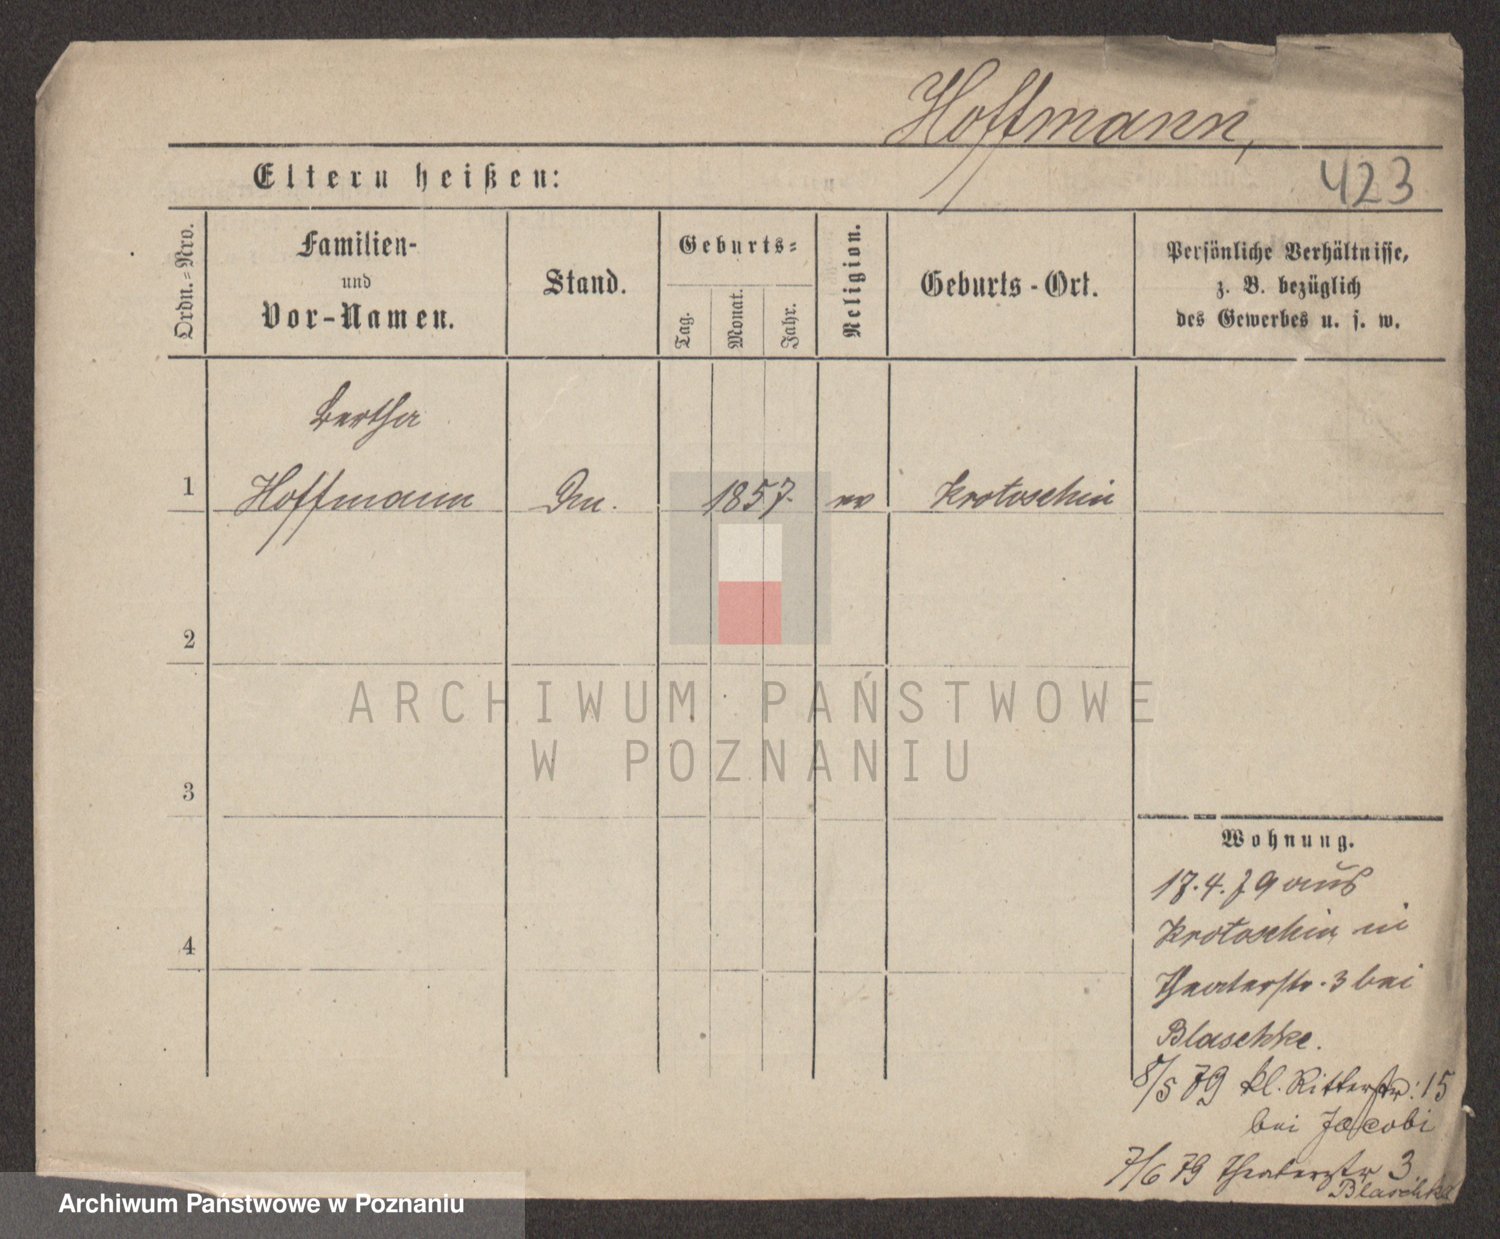 Hoffmann,
Eltern heißen:
423
Ordn.=Nro.
Familien-
und
Vor-Namen.
Stand.
Geburts=
Tag.
Monat.
Jahr.
Religion.
Geburts-Ort.
Persönliche Verhältnisse,
z. B. bezüglich
des Gewerbes u. s. w.
Bertha
1 Hoffmann 1857. Krotoschin
2
ARCHIWUM PAŃSTWOWE
W POZNANIU
3
Wohnung.
17.4.79 aus
Krotoschin in
Theaterstr. 3 bei
Blaschke.
4
8/5 79 kl. Ritterstr: 15
bei Jacobi
7/6 79 Theaterstr 3
Blaschke
Archiwum Państwowe w Poznaniu